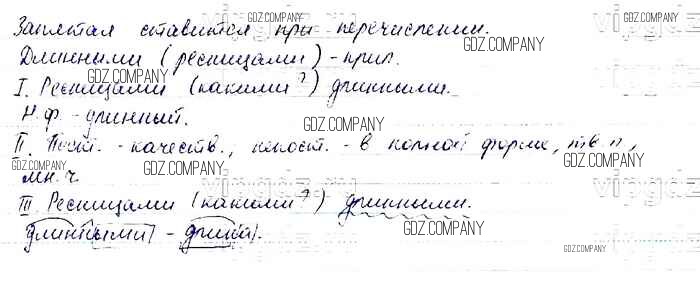 Запятая ставится при перечислении.
Длинными (ресницами) - прил.
I. Ресницами (какими?) длинными.
Н.ф. - длинный.
II. Пост. - качеств., непост. - в полной форме, тв. п.,
мн. ч.
III. Ресницами (какими?) длинными.
длинными -
GDZ.COMPANY
GDZ.COMPANY
GDZ.COMPANY
GDZ.COMPANY
GDZ.COMPANY
GDZ.COMPANY
GDZ.COMPANY
GDZ.COMPANY
GDZ.COMPANY
GDZ.COMPANY
vipgdz
vipgdz
vipgdz